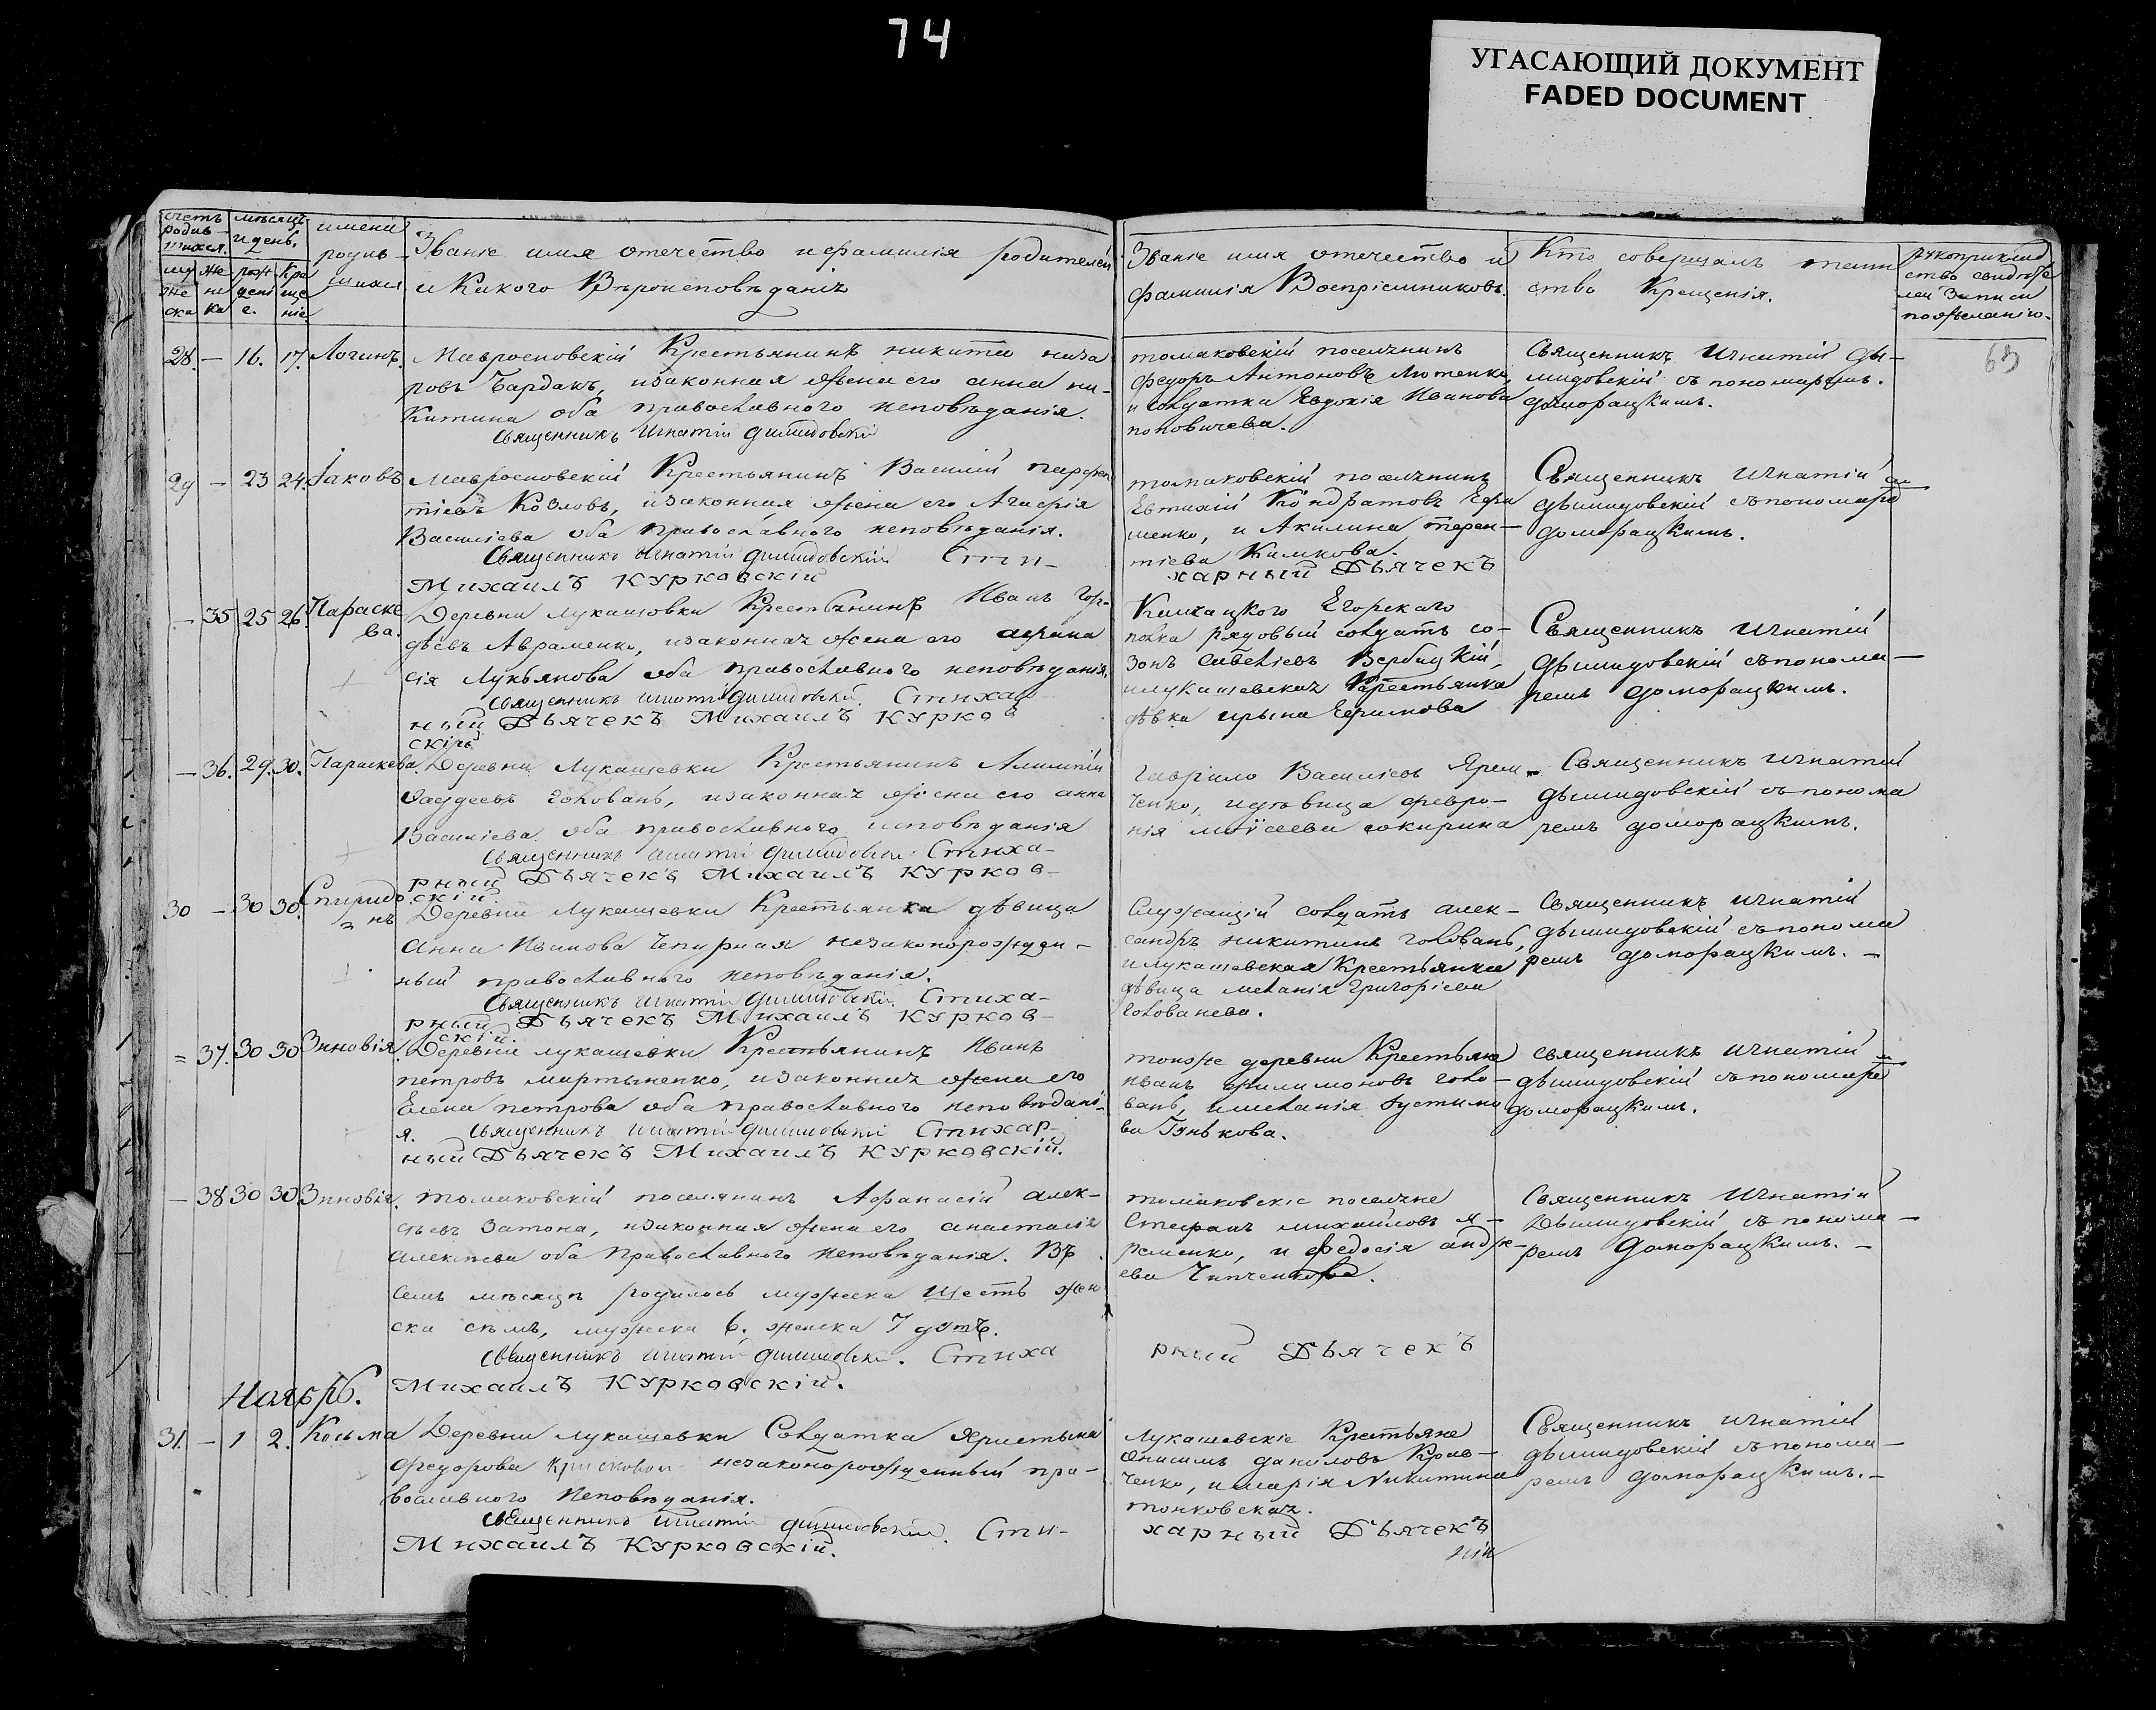 74
УГАСАЮЩИЙ ДОКУМЕНТ
FADED DOCUMENT
счетъ родив-шихся.
мѣсяцъ и день.
имена родив-шихся
Званіе имя отечество и фамилія родителей
и Какого Вѣроисповѣданія
муже ска
же нска
рож дені е.
кре ще ніе.
Званіе имя отечество и
фамилія Воспріемниковъ.
Кто совершалъ таин
ство Крещенія.
рукоприклад
ство свидѣте
лей записи
по желанію.
63
28. — 16. 17. Логинъ. Мавроеновскій Крестьянинъ никита наза
ровъ Бардакъ, и законная жена его анна ни-
китина оба православного исповѣданія.
Священникъ Игнатій Димидовскій
томаковскій поселянинъ
Федоръ Антоновъ Лютенко,
и солдатка Евдокія Иванова
поповичева.
Священникъ Игнатій Ды-
мидовскій съ пономаремъ
доморацкимъ.
29 — 23 24. Іаковъ Мавроеновскій Крестьянинъ Василій парфен
тіевъ Козловъ, и законная жена его Агафія
Василіева оба православного исповѣданія.
Священникъ Игнатій Димидовскій Сти-
Михаилъ Курковскій
томаковскій поселянинъ
Евтихій Кондратовъ
менко, и Акилина терен-
тіева Климкова.
харный Дьячекъ
Священникъ Игнатій
дымидовскій съ пономаре
доморацкимъ.
— 35 25 26. Параске
ва.
Деревни лукашовки Крестьянинъ Иванъ Гор-
дѣевъ Авраменко, и законная жена его афана
сія Лукьянова оба православного исповѣданія.
Священникъ игнатій димидовскій. Стихар
ный Дьячекъ Михаилъ Курков
скій
Егорскаго
полка рядовый солдатъ со-
зонъ савеліевъ Вербицкій,
и лукашевская Крестьянка
дѣвка ирына Ефимова
Священникъ Игнатій
дымидовскій съ понома-
ремъ доморацкимъ.
— 36. 29. 30. Параскева. Деревни Лукашевки Крестьянинъ Алимпій
Фаддеевъ головань, и законная жена его анна
Василіева оба православного исповѣданія
Священникъ игнатій димидовскій. Стиха-
рный Дьячекъ Михаилъ Курков-
скій.
Гаврило Василіевъ Ярем-
ченко, и дѣвица февро-
нія моісеева сокирина
Священникъ Игнатій
дымидовскій съ понома
ремъ доморацкимъ.
30 — 30 30. Спиридо
нъ
Деревни Лукашевки Крестьянка дѣвица
Анна Иванова Чепурная незаконорожден-
ный православного исповѣданія.
Священникъ игнатій димидовскій. Стиха-
рный Дьячекъ Михаилъ Курков-
скій.
Служащій солдатъ алек-
сандръ никитинъ головань,
и лукашевская Крестьянка
дѣвица меланія григоріева
Голованева.
Священникъ Игнатій
дымидовскій съ понома
ремъ доморацкимъ. —
= 37. 30 30 Зиновія. Деревни лукашевки Крестьянинъ Иванъ
петровъ мартыненко, и законная жена его
Елена петрова оба православного исповѣдані-
я. Священникъ игнатій димидовскій Стихар-
ный Дьячекъ Михаилъ Курковскій.
тоиже деревни Крестьяне
иванъ филимоновъ голо-
вань, и меланія Іустино
ва Гунькова.
священникъ игнатій
дымидовскій съ пономаре
доморацкимъ.
— 38 30 30 Зиновія. томаковскій поселянинъ Афанасій алек-
сѣевъ Затона, и законная жена его анастасія
алексѣева оба Православного исповѣданія. Въ
семъ мѣсяцѣ родилось мужеска шесть жен
ска семъ, мужеска 6. женска 7 душъ.
священникъ игнатій димидовскій. Стиха
Михаилъ Курковскій.
томаковскіе поселяне
Стефанъ михайловъ я-
ременко, и федосія андре-
ева Чипченкова.
рный Дьячекъ
Священникъ Игнатій
Дымидовскій съ понома-
ремъ Доморацкимъ. —
Ноябрь.
31. — 1 2. Косьма Деревни лукашевки Солдатка Христина
Федорова незаконорожденный пра-
вославного исповѣданія.
священникъ Игнатій димидовскій. Сти-
Михаилъ Курковскій.
Лукашевскіе Крестьяне
Онисимъ даниловъ Крав-
ченко, и марія Никитина
тонковская.
харный Дьячекъ
Священникъ Игнатій
дымидовскій съ понома-
ремъ доморацкимъ. —